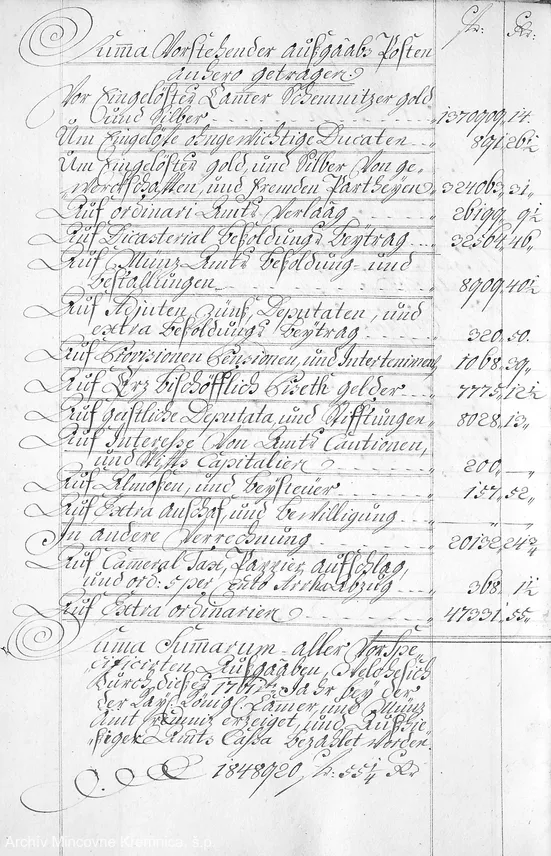 fr: Kr:
Suma Vorstehender Außgaabs Posten
anhero getragen
Vor Eingelößtes Camer Schemnitzer gold
und Silber 1370909. 14.
Um Eingelößte ohngewichtige Ducaten 891. 26½
Um Eingelößtes gold, und Silber Von ge-
werckschafften, und fremden Partheyen 324063. 31
Auf ordinari Amts Verlaag 26199. 9½
Auf Dicasterial Besoldungs Beytrag 32564. 46
Auf Münz Amts Besoldung und
Bestallungen 8909. 40½
Auf Adjuten, Deputaten, und
extra Besoldungs Beytrag 320. 50.
Auf Provisionen Pensionen, und Intertenimen 1068. 39
Auf Erz Bischöfflich Piseth gelder 7775. 12½
Auf geistliche Deputata, und Stifftungen 8028. 13
Auf Interesse Von Amts Cautionen,
und Stiffts Capitalien 200. —
Auf Almosen, und Beysteuer 157. 52
Auf Extra Anschaf, und Bewilligung — —
In andere Verrechnung 20132. 24¾
Auf Cameral Tax, Aufschlag,
und ord: 5 per Cento Arrha Abzug 368. 1½
Auf Extra ordinarien 47331. 55
Suma Sumarum aller Vorspe-
cificirten Außgaaben, Welche sich
durch dieses Jahr bey der
Kay: König: Camer, und Münz
Amt Cremniz erzeiget, und Auß hie-
siger Amts Cassa bezahlet worden
1848920, fr: 55¼ Kr
Archív Mincovne Kremnica, š.p.